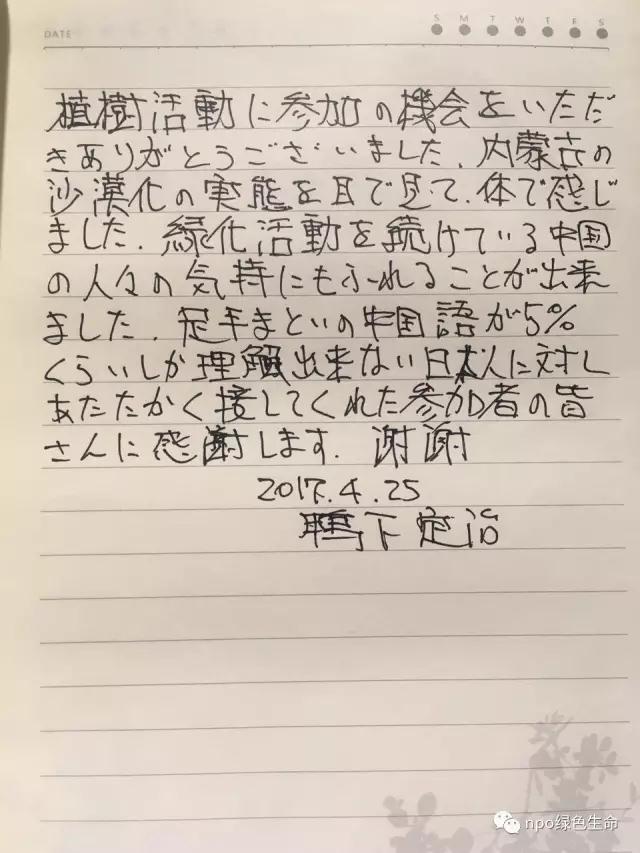 DATE
S M T W T F S
植樹活動に参加の機会をいただ
きありがとうございました.内蒙古の
沙漠化の実態を目で見て.体で感じ
ました.緑化活動を続けている中国
の人々の気持にもふれることが出来
ました.足手まといの中国語が5%
くらいしか理解出来ない日本人に対し
あたたかく接してくれた参加者の皆
さんに感謝します. 谢谢
2017.4.25
鴨下定治
npo绿色生命